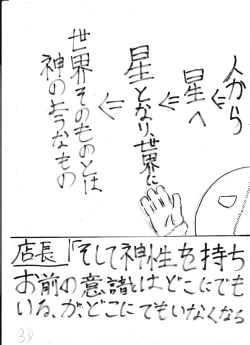 人から
⇓
星へ
⇓
星となり、世界に
⇓
世界そのものとは
神のようなもの
店長「そして神性を持ち
お前の意識はどこにでも
いる、が、どこにでもいなくなる
39